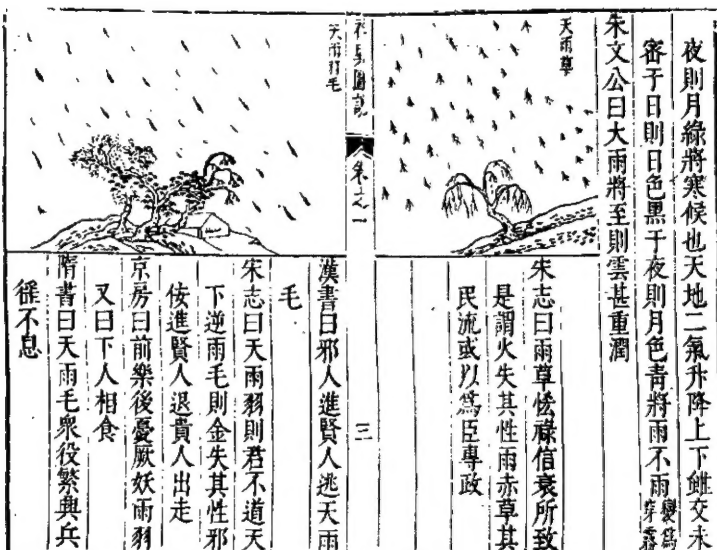 夜則月綠將寒候也天地二氣升降上下雖交未
密于日則日色黑于夜則月色青將雨不雨變為
穿霧
朱文公曰大雨將至則雲甚重潤
天雨草
宋志曰雨草恡祿信衰所致
是謂火失其性雨赤草其
民流或以為臣專政
祥異圖說
卷之一
三
天雨羽毛
漢書曰邪人進賢人逃天雨
毛
宋志曰天雨羽則君不道天
下逆雨毛則金失其性邪
佞進賢人退貴人出走
京房曰前樂後憂厥妖雨羽
又曰下人相食
隋書曰天雨毛眾役繁興兵
徭不息